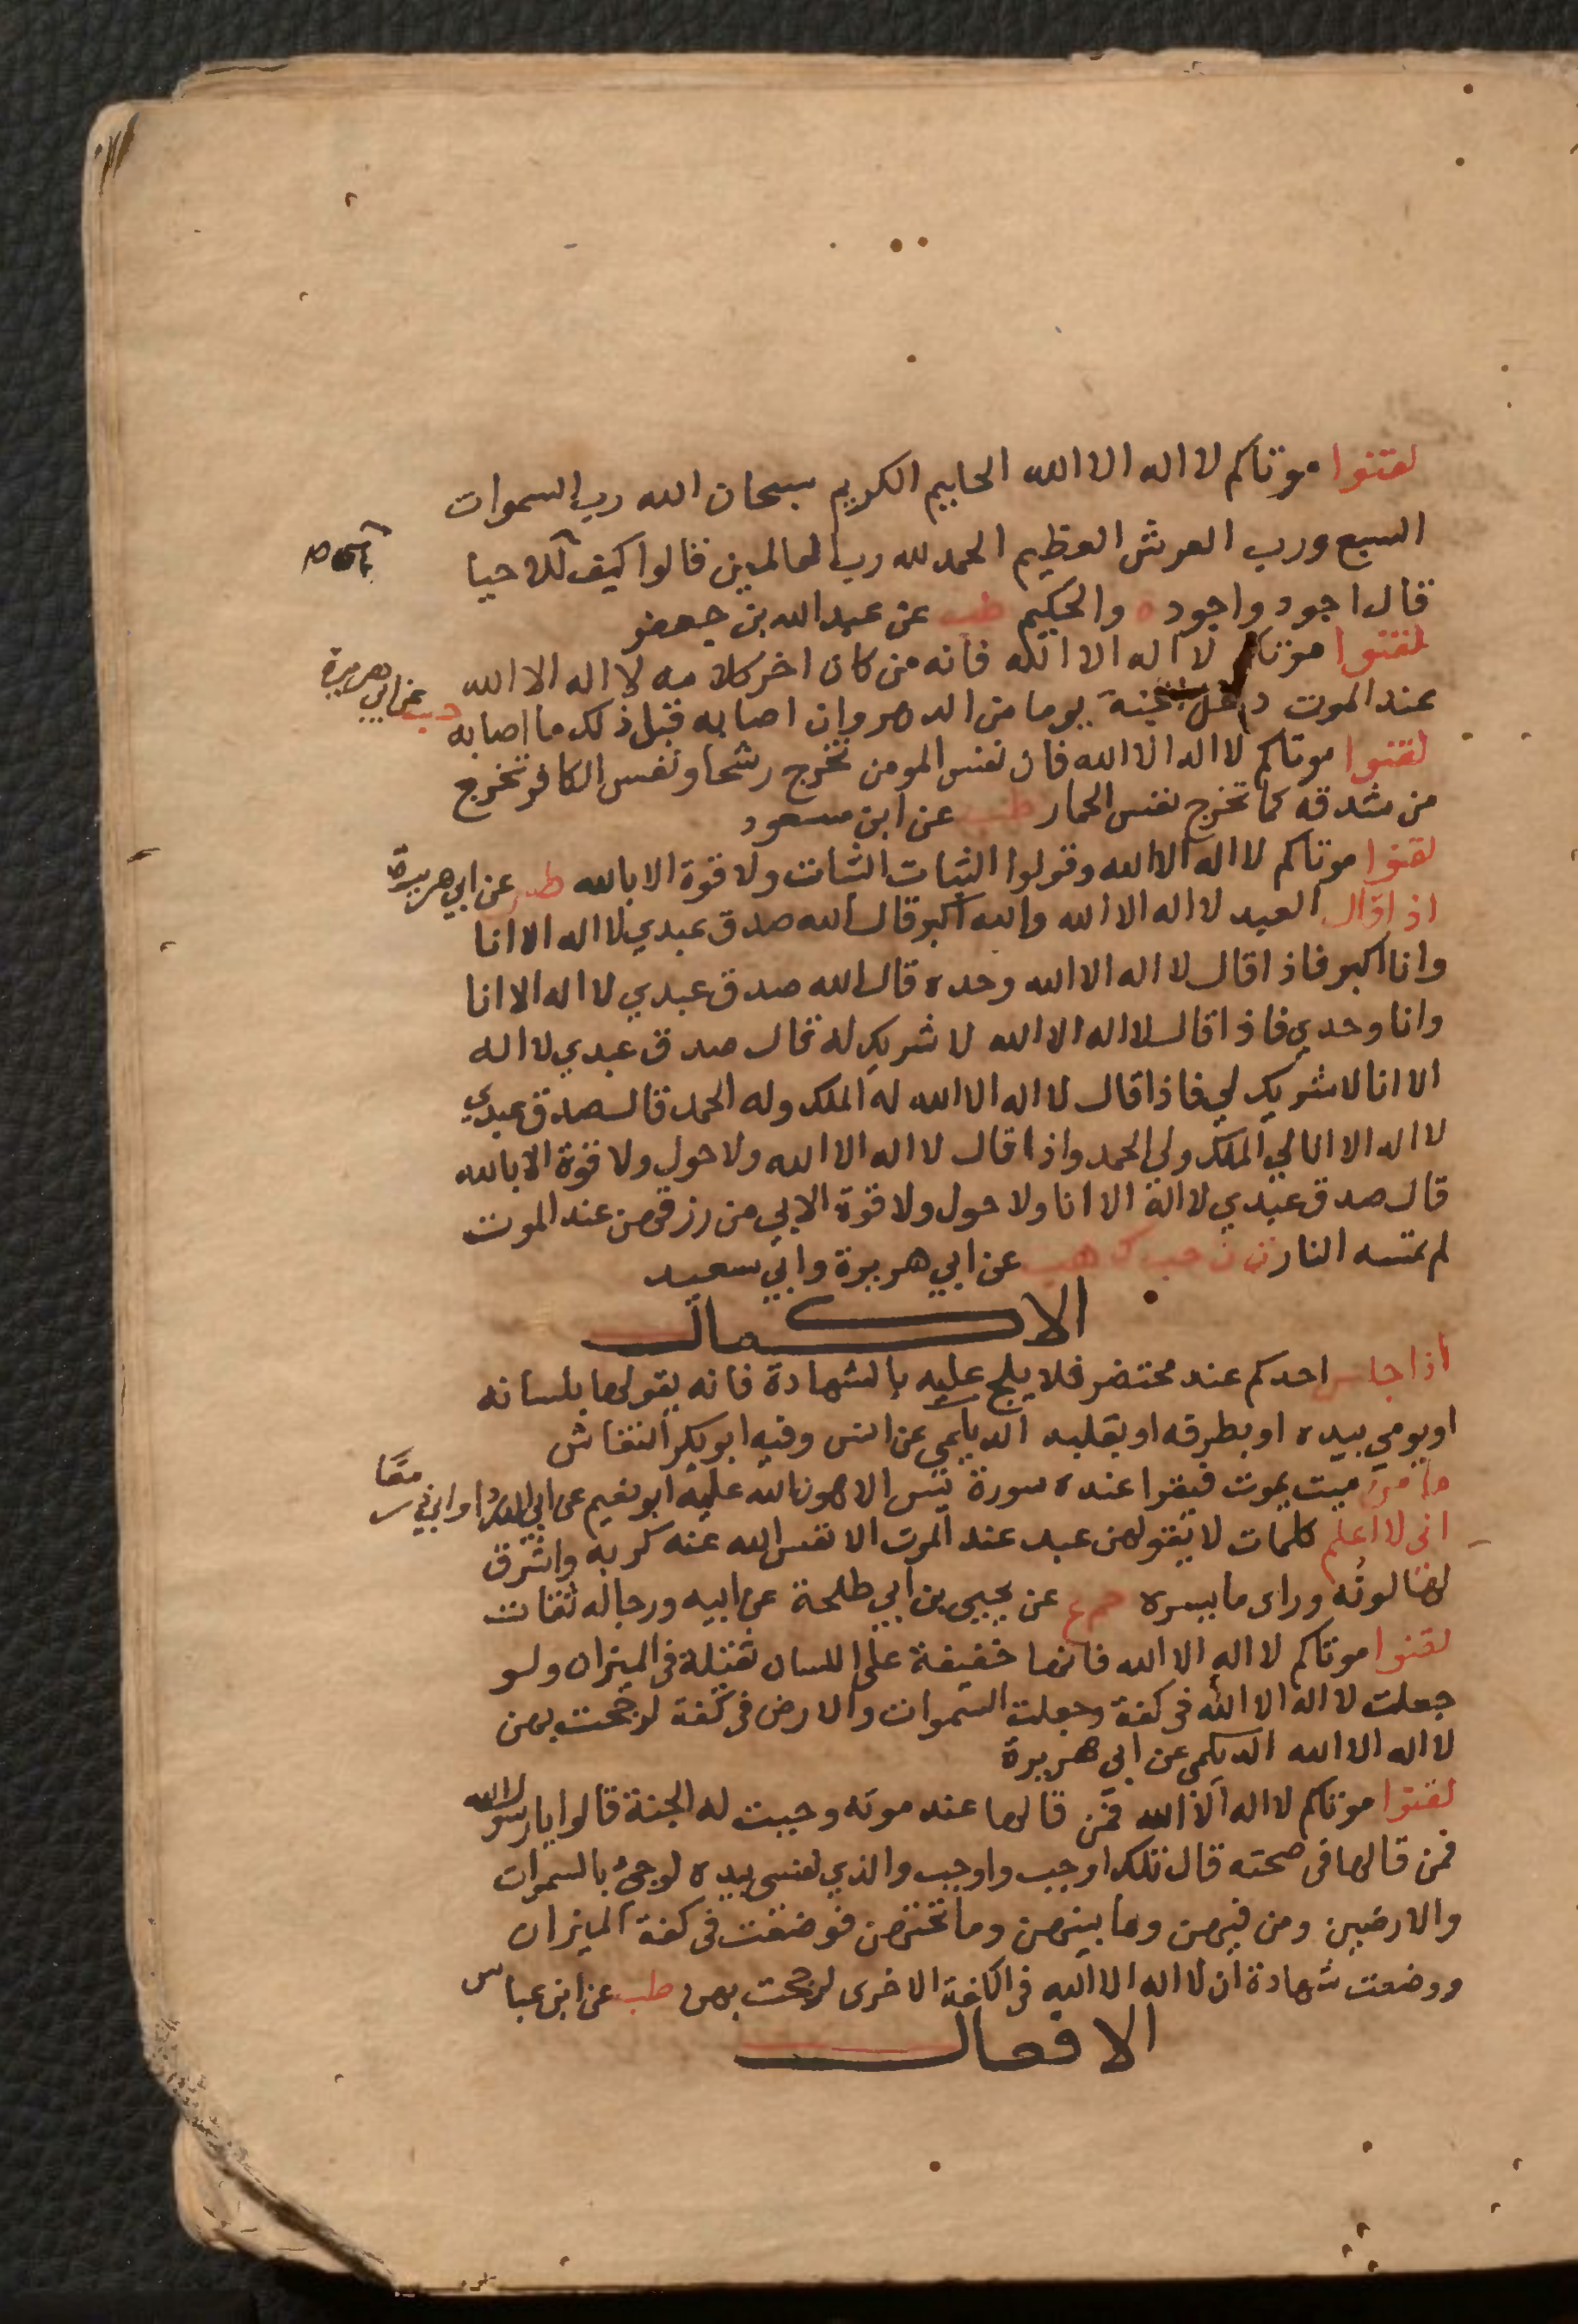 لقنوا موتاكم لا اله الا الله الحليم الكريم سبحان الله رب السموات
السبع ورب العرش العظيم الحمد لله رب العالمين قالوا كيف للاحيا
قال اجود واجود ه والحكيم طب عن عبد الله بن جعفر
لقنوا موتاكم لا اله الا الله فانه من كان اخر كلامه لا اله الا الله
عند الموت دخل الجنة يوما من الدهر وان اصابه قبل ذلك ما اصابه حب عن ابي هريرة
لقنوا موتاكم لا اله الا الله فان نفس المومن تخرج رشحا ونفس الكافر تخرج
من شدقه كما تخرج نفس الحمار طب عن ابن مسعود
لقنوا موتاكم لا اله الا الله وقولوا الثبات الثبات ولا قوة الا بالله طس عن ابي هريرة
اذا قال العبد لا اله الا الله والله اكبر قال الله صدق عبدي لا اله الا انا
وانا اكبر فاذا قال لا اله الا الله وحده قال الله صدق عبدي لا اله الا انا
وانا وحدي فاذا قال لا اله الا الله لا شريك له قال صدق عبدي لا اله
الا انا لا شريك لي فاذا قال لا اله الا الله له الملك وله الحمد قال صدق عبدي
لا اله الا انا لي الملك ولي الحمد واذا قال لا اله الا الله ولا حول ولا قوة الا بالله
قال صدق عبدي لا اله الا انا ولا حول ولا قوة الا بي من رزقهن عند الموت
لم تمسه النار ت ن حب ك هب عن ابي هريرة وابي سعيد
الاكمال
اذا جلس احدكم عند محتضر فلا يلح عليه بالشهادة فانه يقولها بلسانه
او يومي بيده او بطرفه او بقلبه الديلمي عن انس وفيه ابو بكر النقاش
ما من ميت يموت فيقرا عنده سورة يس الا هون الله عليه ابو نعيم عن ابي الدردا وابي ذر معا
اني لا اعلم كلمات لا يقولهن عبد عند الموت الا نفس الله عنه كربه واشرق
لها لونه وراى ما يسره حم ع عن يحيى بن ابي طلحة عن ابيه ورجاله ثقات
لقنوا موتاكم لا اله الا الله فانها خفيفة على اللسان ثقيلة في الميزان ولو
جعلت لا اله الا الله في كفة وجعلت السموات والارض في كفة لرجحت بهن
لا اله الا الله الديلمي عن ابي هريرة
لقنوا موتاكم لا اله الا الله فمن قالها عند موته وجبت له الجنة قالوا يا رسول الله
فمن قالها في صحته قال تلك اوجب واوجب والذي نفسي بيده لو جئ بالسموات
والارضين ومن فيهن وما بينهن وما تحتهن فوضعت في كفة الميزان
ووضعت شهادة ان لا اله الا الله في الكفة الاخرى لرجحت بهن طب عن ابن عباس
الافعال